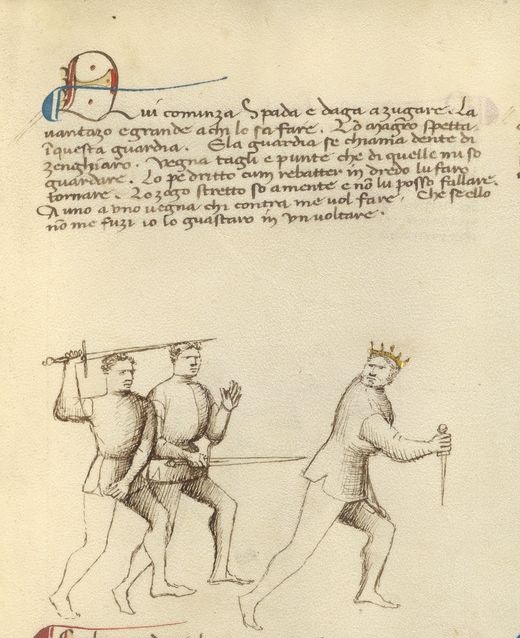 Qui cominza Spada e daga a zugare. La
vantazo e grande a chi lo sa fare. Lo magro spetta
in questa guardia. E la guardia se chiama dente di
zenghiaro. Vegna tagli e punte che di quelle mi so
guardare. Lo pe dritto cum rebatter in dredo lu faro
tornare. Lo zogo stretto so a mente e non lu posso fallare.
A uno a uno vegna chi contra me vol fare. Che se ello
no me fuzi io lo guastaro in un voltare.